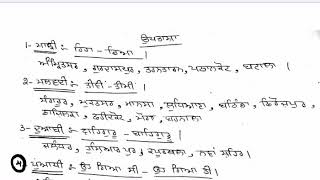 ਉਪਭਾਸ਼ਾ
1- ਮਾਝੀ :- ਕਿਹਾ - ਗਿਆ ।
ਅੰਮ੍ਰਿਤਸਰ, ਗੁਰਦਾਸਪੁਰ, ਤਰਨਤਾਰਨ, ਪਠਾਨਕੋਟ, ਬਟਾਲਾ ।
2- ਮਲਵਈ :- ਤੀਵੀਂ - ਤੀਮੀਂ ।
ਸੰਗਰੂਰ, ਮੁਕਤਸਰ, ਮਾਨਸਾ, ਲੁਧਿਆਣਾ, ਬਠਿੰਡਾ, ਫਿਰੋਜ਼ਪੁਰ,
ਫਾਜ਼ਿਲਕਾ, ਫਰੀਦਕੋਟ, ਮੋਗਾ, ਬਰਨਾਲਾ
3- ਦੁਆਬੀ :- ਵਾਹਿਗੁਰੂ - ਬਾਹਿਗੁਰੂ ।
ਜਲੰਧਰ, ਹੁਸ਼ਿਆਰਪੁਰ, ਕਪੂਰਥਲਾ, ਨਵਾਂ ਸ਼ਹਿਰ ।
ਪੁਆਧੀ :- ਉਹ ਗਿਆ ਸੀ - ਉਹ ਗਿਆ ਤੀ ।